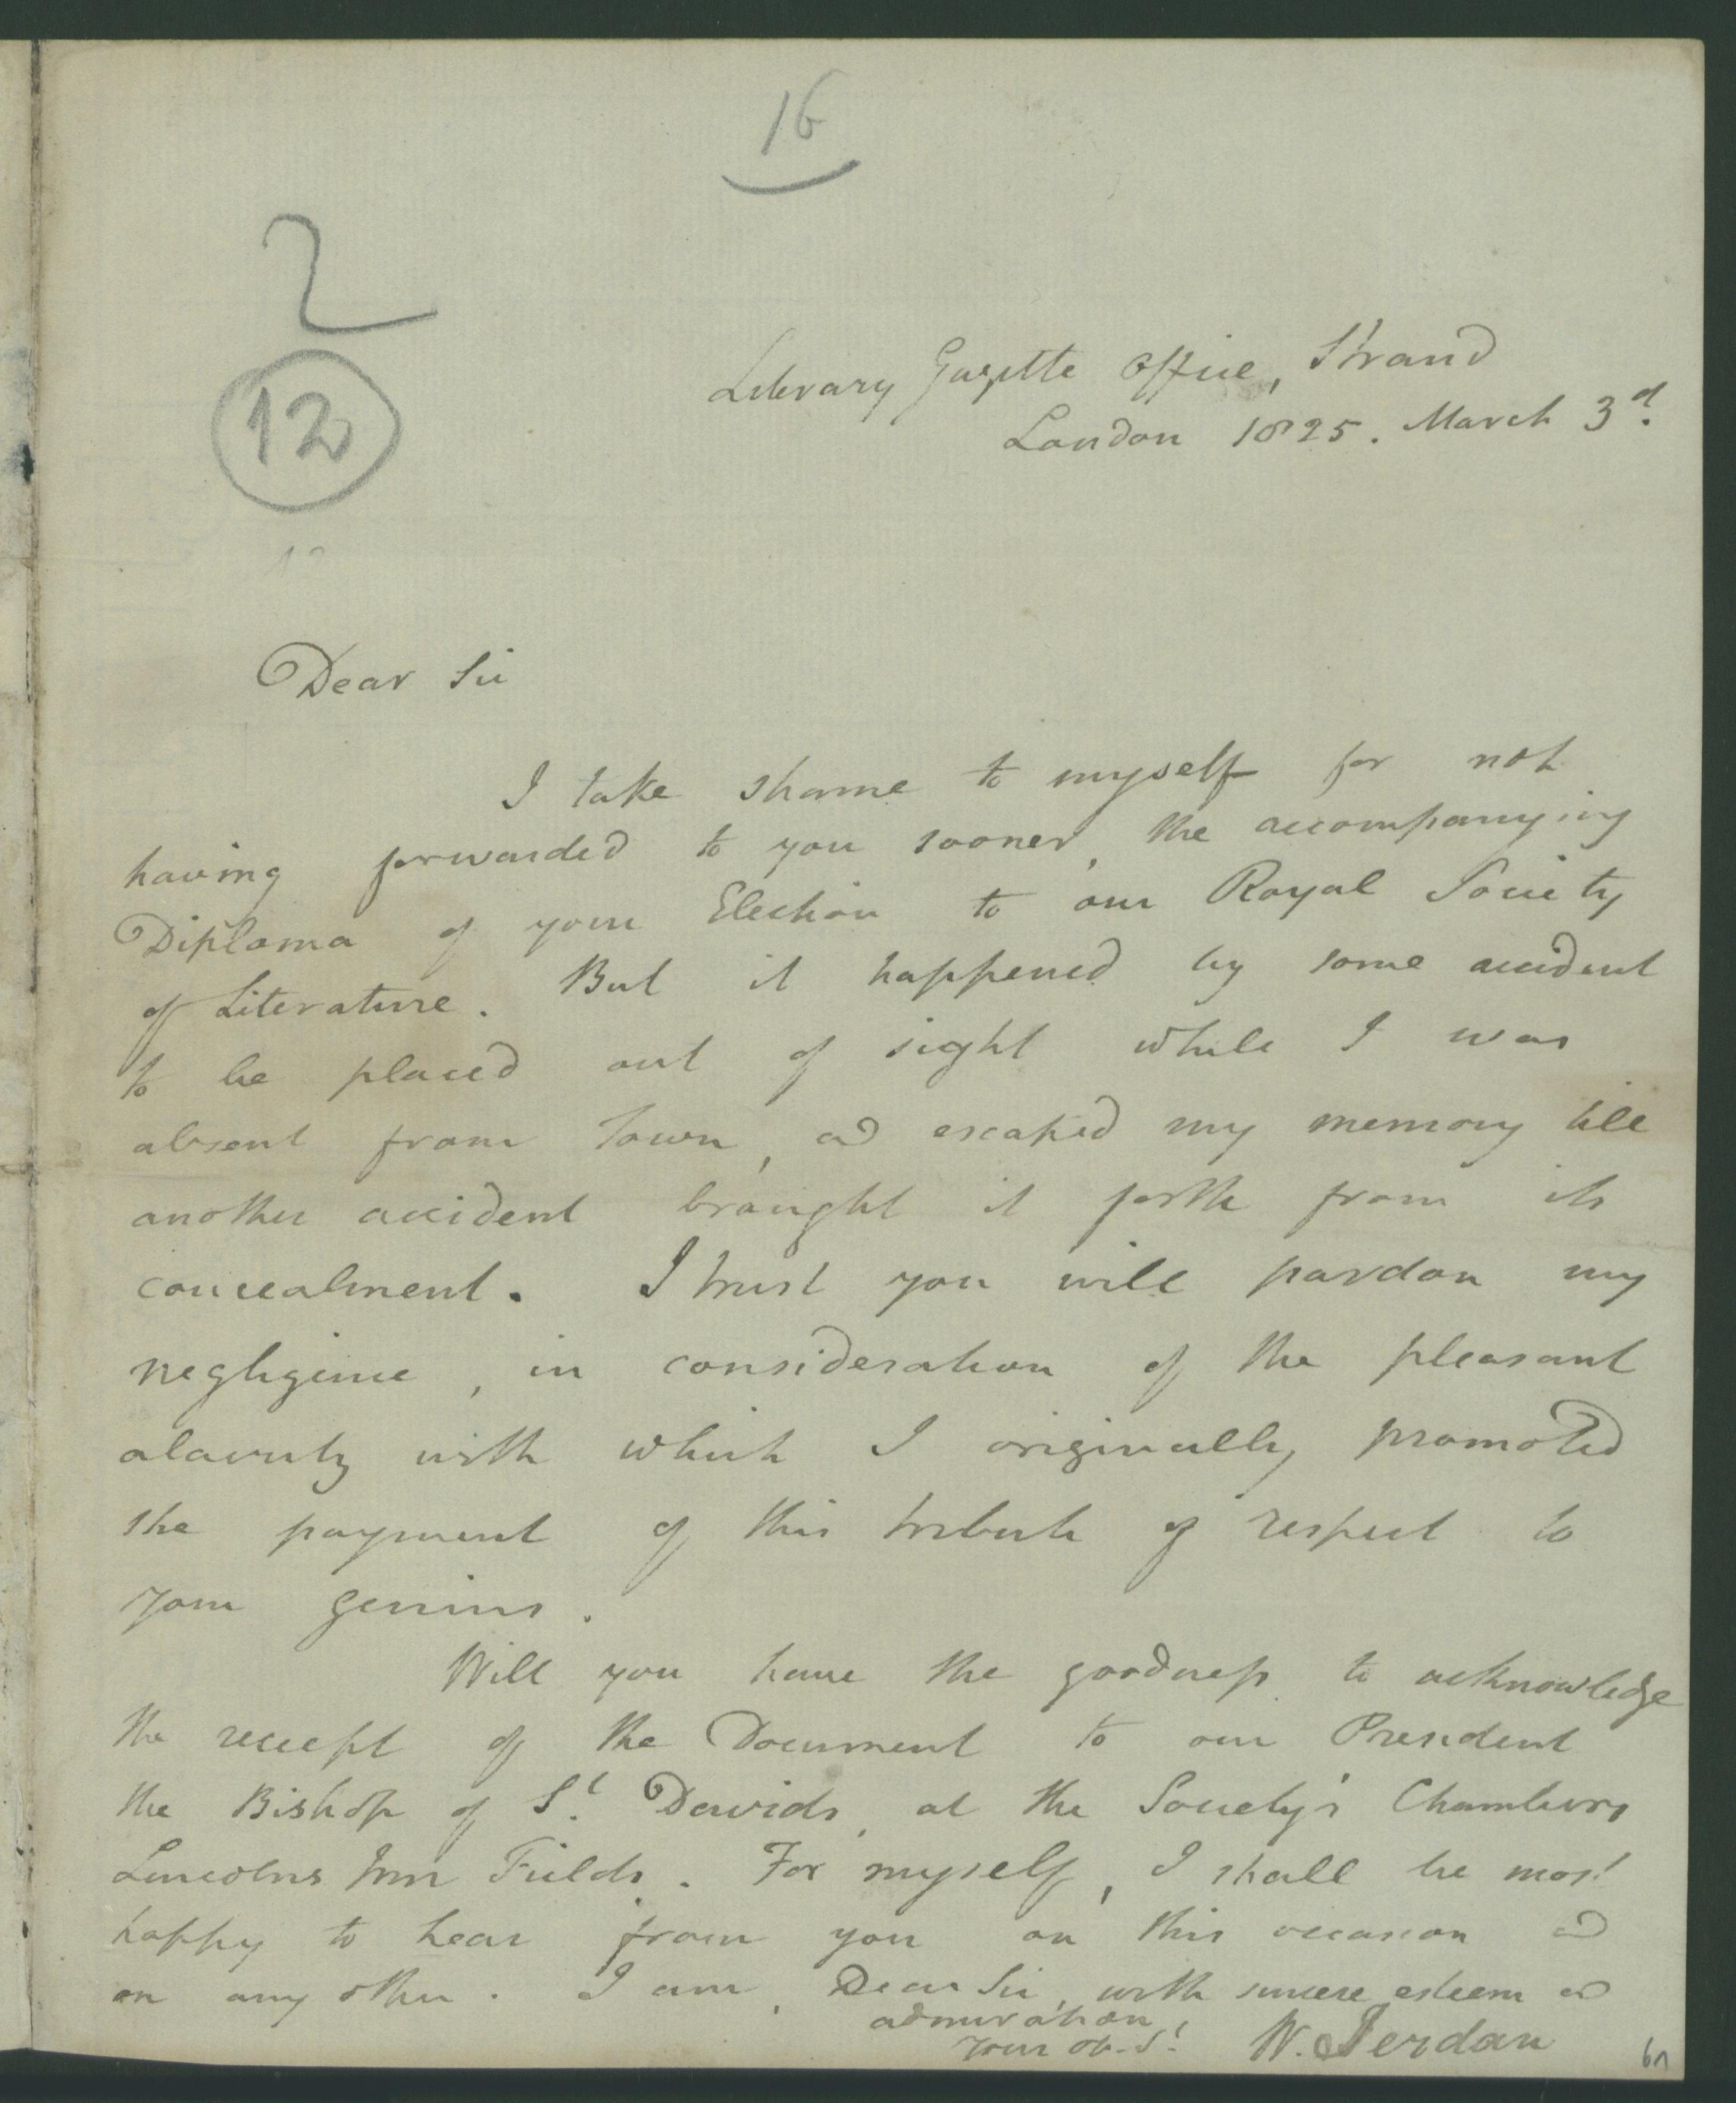 16
2
12
Literary Gazette Office, Strand
London 1825. March 3d.
Dear Sir
I take shame to myself for not
having forwarded to you sooner, the accompanying
Diploma of your Election to our Royal Society
of Literature. But it happened by some accident
to be placed out of sight while I was
absent from Town, and escaped my memory till
another accident brought it forth from its
concealment. I trust you will pardon my
negligence, in consideration of the pleasant
alacrity with which I originally promoted
the payment of this tribute of respect to
your genius.
Will you have the goodness to acknowledge
the receipt of the Document to our President
the Bishop of St. Davids, at the Society's Chambers
Lincolns Inn Fields. For myself, I shall be most
happy to hear from you on this occasion and
on any other. I am, Dear Sir, with sincere esteem and
admiration,
Your ob. St.
W. Jerdan